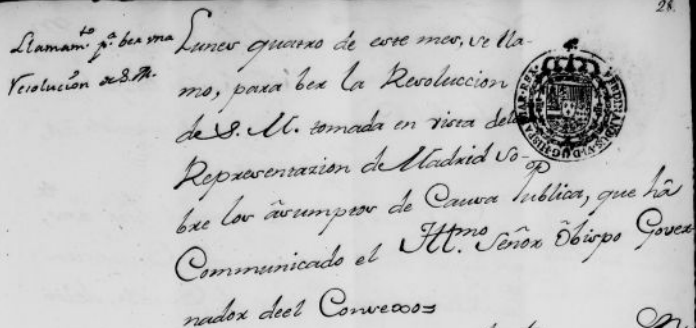 28.
Llamam.to p.a ber vna
Resolucion de S. M.
Lunes quatro de este mes, se lla-
mo, para ber la Resoluccion
de S. M. tomada en vista de la
Representazion de Madrid So-
bre los âsumptos de Causa Publica, que hâ
Communicado el Ill.mo Señor Obispo Gover-
nador deel Consexo=